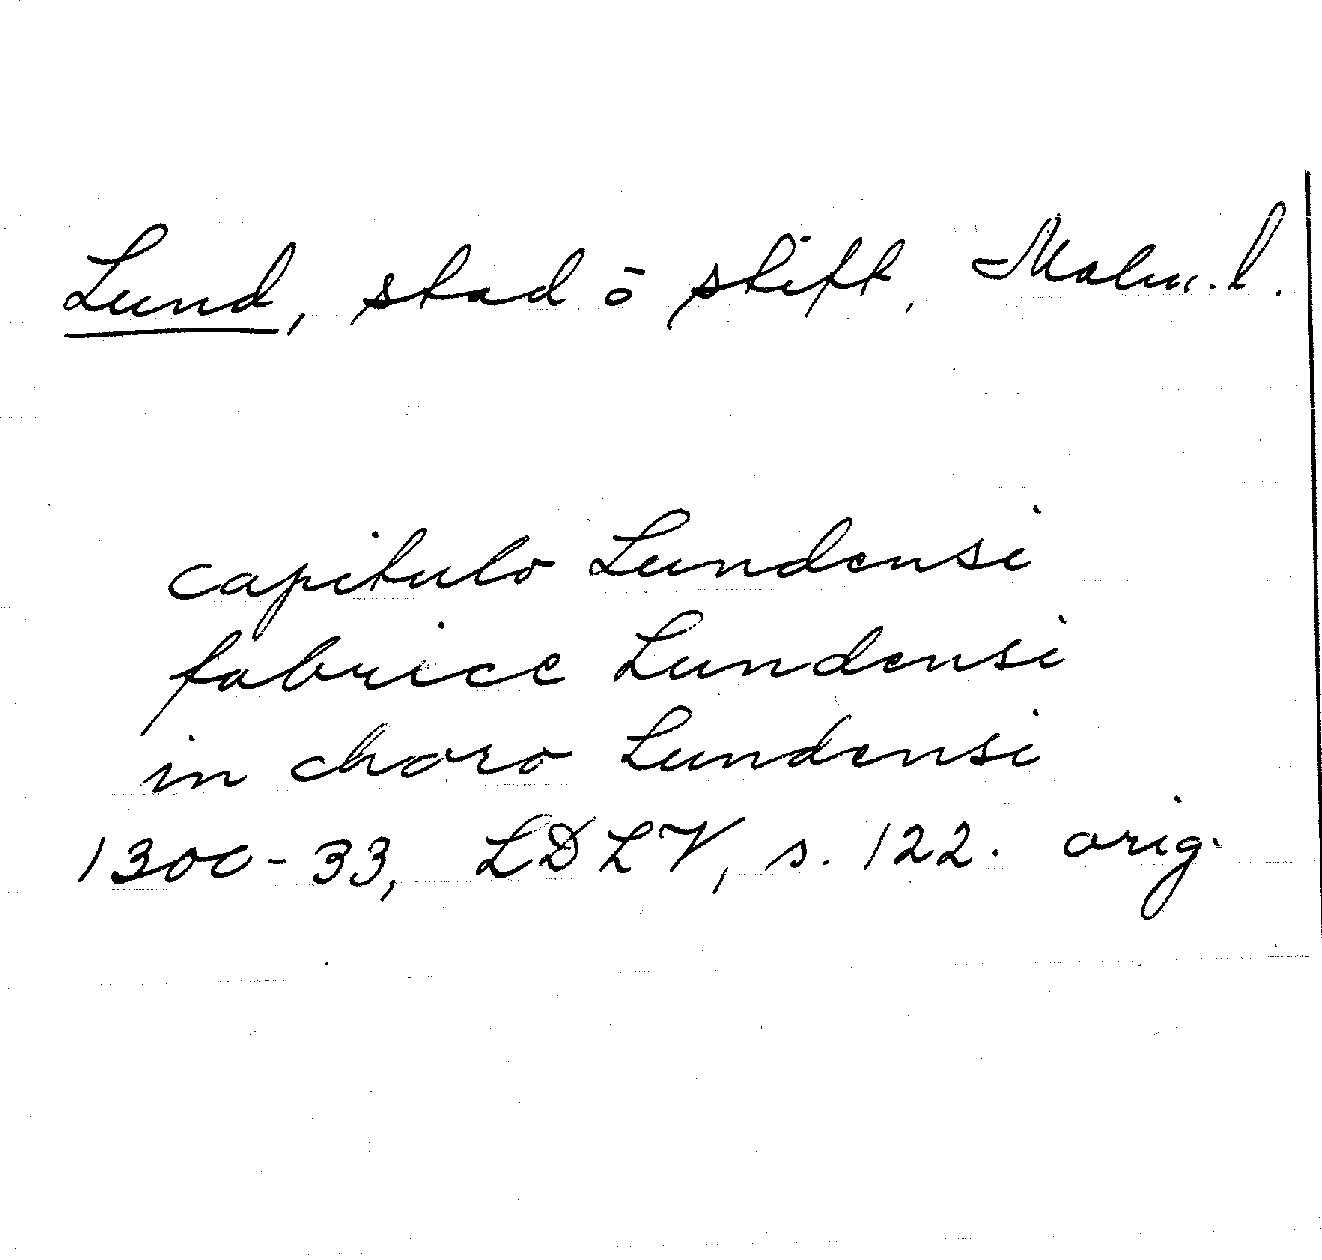 Lund, stad ō stift, Malm. l.
capitulo Lundensi
fabrice Lundensi
in choro Lundensi
1300-33, LDLV, s. 122. orig.